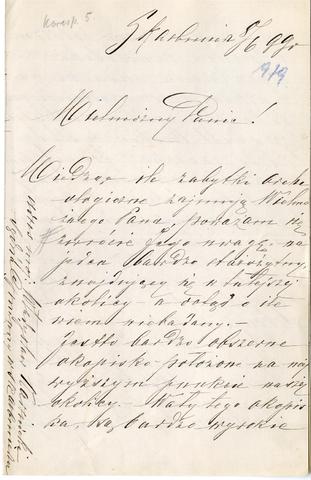 Koresp. 5.
Skarbimierz 8/6 99 r
979
Wielmożny Panie!
Wiedząc ile zabytki arche
ologiczne zajmują Wielmo
żnego Pana, pozwalam się
zwrócić Jego uwagę, na
jeden bardzo starożytny,
znajdujący się w tutejszej
okolicy a dotąd o ile
wiem niebadany. –
Jest to bardzo obszerne
okopisko – położone na naj
wyższym punkcie naszej
okolicy. – Wały tego okopis
ka, są bardzo wysokie
adres mój: Władysław